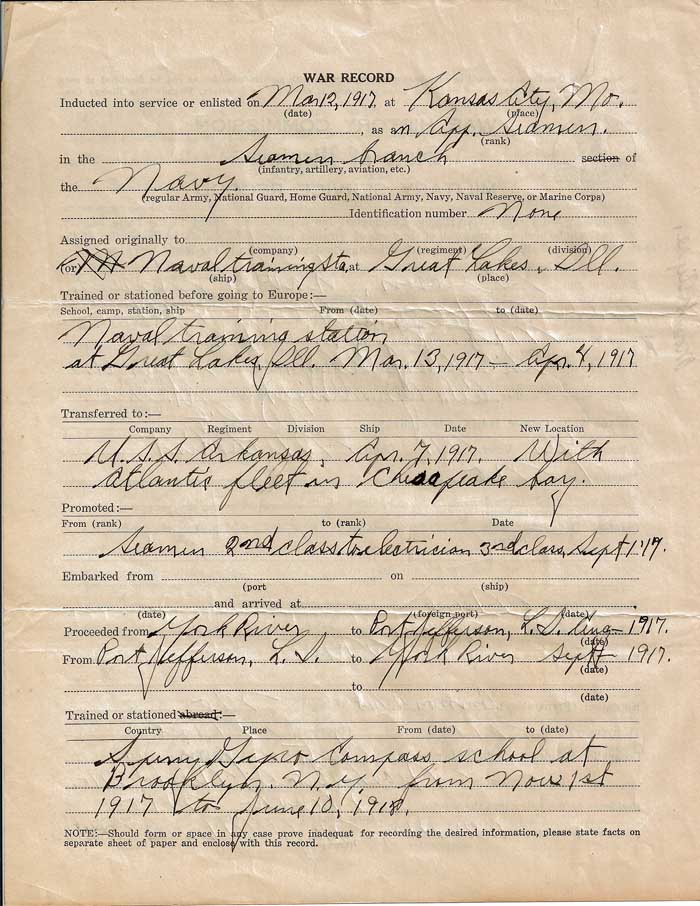 WAR RECORD
Inducted into service or enlisted on Mar 12, 1917. at Kansas City, Mo.
(date) (place)
, as an App. Seamen.
(rank)
in the Seamen branch section of
(infantry, artillery, aviation, etc.)
the Navy.
(regular Army, National Guard, Home Guard, National Army, Navy, Naval Reserve, or Marine Corps)
Identification number None
Assigned originally to
(company) (regiment) (division)
(or Naval training Sta, at Great Lakes, Ill.
(ship) (place)
Trained or stationed before going to Europe:—
School, camp, station, ship From (date) to (date)
Naval training station
at Great Lakes, Ill. Mar. 13, 1917 — Apr. 4, 1917
Transferred to:—
Company Regiment Division Ship Date New Location
U.S.S. Arkansas, Apr. 7, 1917. With
Atlantic fleet in Cheaapeake bay.
Promoted:—
From (rank) to (rank) Date
Seamen 2nd class to electrician 3rd class, Sept 1 '17.
Embarked from on
(port (ship)
and arrived at
(date) (foreign port) (date)
Proceeded from York River to Port Jefferson, L.I. Aug 1917.
(date)
From Port Jefferson, L.I. to York River Sept 1917.
(date)
to
(date)
Trained or stationed abroad:—
Country Place From (date) to (date)
Sperry Gyro Compass school at
Brooklyn. N.Y. from Nov. 1st
1917 to June 10, 1918.
NOTE:—Should form or space in any case prove inadequat for recording the desired information, please state facts on
separate sheet of paper and enclose with this record.